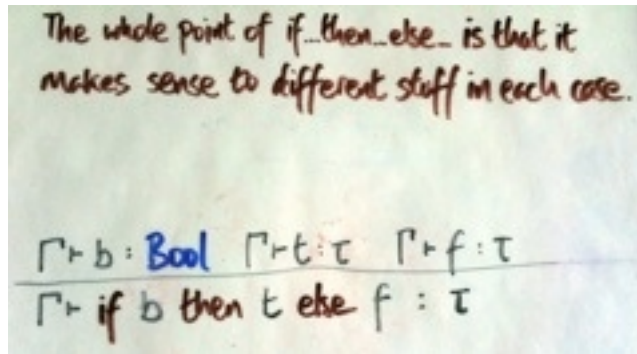 The whole point of if_then_else_ is that it
makes sense to different stuff in each case.
Γ⊢b : Bool Γ⊢t : τ Γ⊢f : τ
Γ⊢ if b then t else f : τ